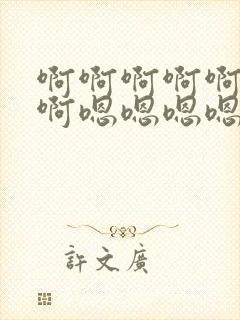 啊啊啊啊啊
啊嗯嗯嗯嗯
許文廣